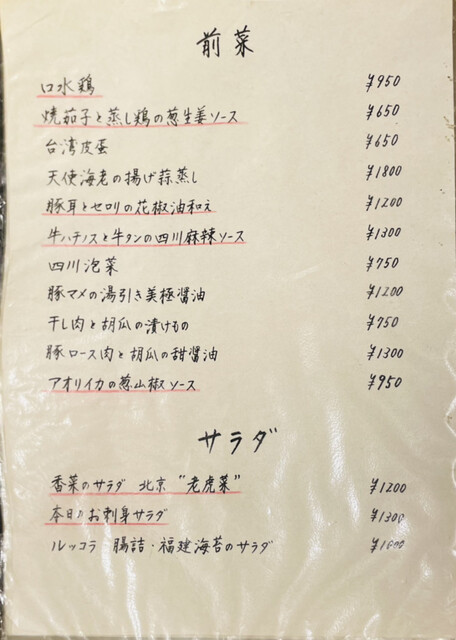 前菜
口水鶏 ¥950
焼茄子と蒸し鶏の葱生姜ソース ¥650
台湾皮蛋 ¥650
天使海老の揚げ蒜蒸し ¥1800
豚耳とセロリの花椒油和え ¥1200
牛ハチノスと牛タンの四川麻辣ソース ¥1300
四川泡菜 ¥750
豚マメの湯引き美極醤油 ¥1200
干し肉と胡瓜の漬けもの ¥750
豚ロース肉と胡瓜の甜醤油 ¥1300
アオリイカの葱山椒ソース ¥950
サラダ
香菜のサラダ 北京 "老虎菜" ¥1200
本日のお刺身サラダ ¥1300
ルッコラ 腸詰・福建海苔のサラダ